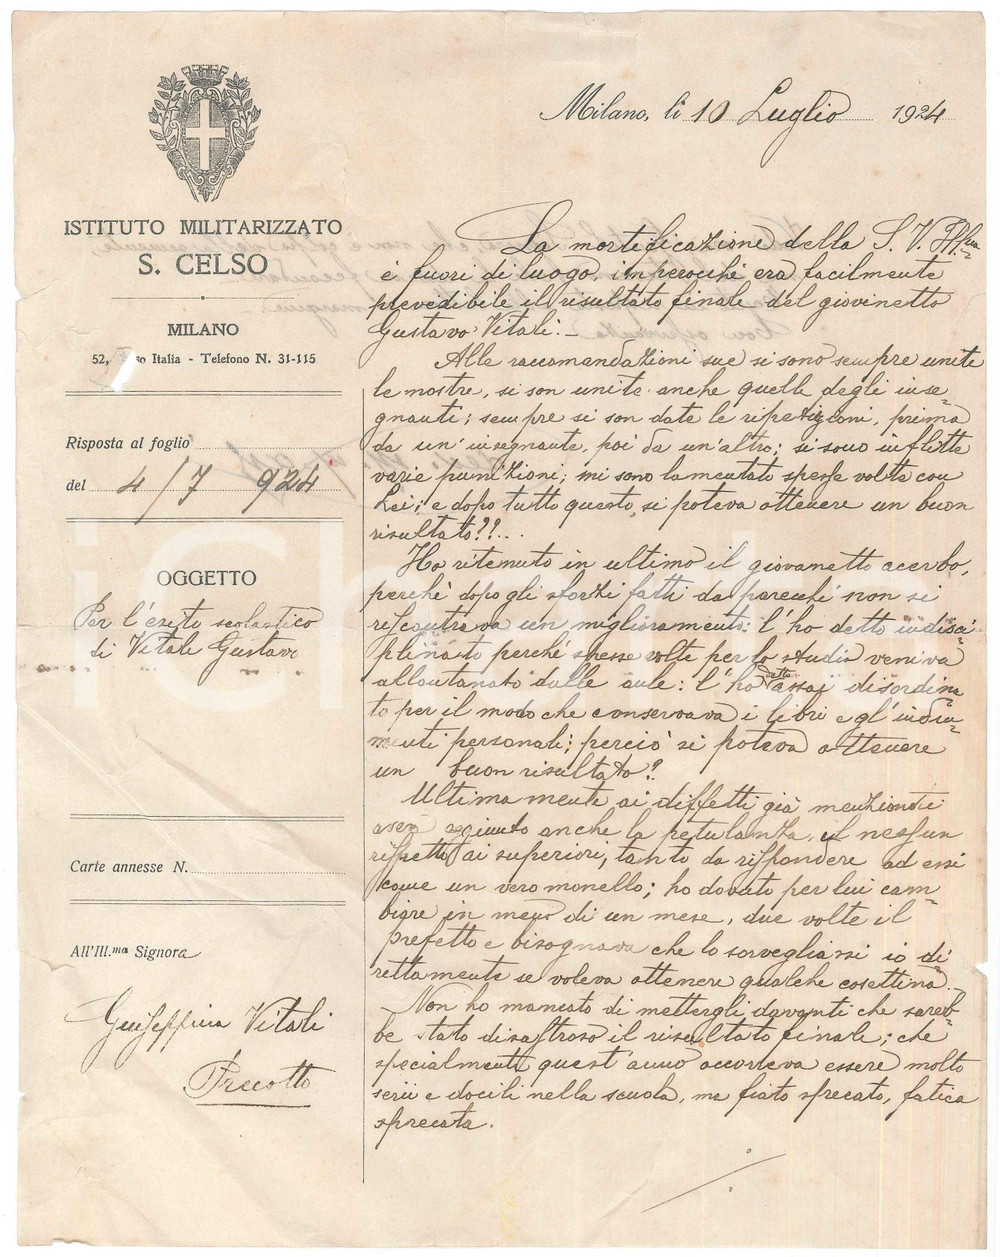 Milano, li 10 Luglio 1924
ISTITUTO MILITARIZZATO
S. CELSO
MILANO
52, so Italia - Telefono N. 31-115
Risposta al foglio
del 4/7 924
OGGETTO
Per l'esito scolastico
di Vitali Gustavo
Carte annesse N.
All'Ill.ma Signora
Giuseppina Vitali
Precotto
La mortificazione della S. V. Ill.ma
è fuori di luogo, imperocchè era facilmente
prevedibile il risultato finale del giovinetto
Gustavo Vitali:-
Alle raccomandazioni sue si sono sempre unite
le nostre, si son unite anche quelle degli inse=
gnanti; sempre si son date le ripetizioni, prima
da un'insegnante, poi da un'altro; si sono inflitte
varie punizioni; mi sono lamentato spesse volte con
Lei; e dopo tutto questo, si poteva ottenere un buon
risultato??...
Ho ritenuto in ultimo il giovanetto acerbo,
perchè dopo gli sforzi fatti da parecchi non si
riscontrava un miglioramento: l'ho detto indisci=
plinato perchè spesse volte per lo studio veniva
allontanato dalle aule: l'ho detto assai disordina=
to per il modo che conservava i libri e gl'indu=
menti personali; perciò si poteva ottenere
un buon risultato?
Ultimamente, ai diffetti già menzionati
aveva aggiunto anche la petulanza, il nessun
rispetto ai superiori, tanto da rispondere ad essi
come un vero monello; ho dovuto per lui cam=
biare in meno di un mese, due volte il
prefetto e bisognava che lo sorvegliassi io di=
rettamente se voleva ottenere qualche cosettina.
Non ho mancato di mettergli davanti che sareb=
be stato disastroso il risultato finale; che
specialmente quest'anno occorreva essere molto
serii e docili nella scuola, ma fiato sprecato, fatica
sprecata.